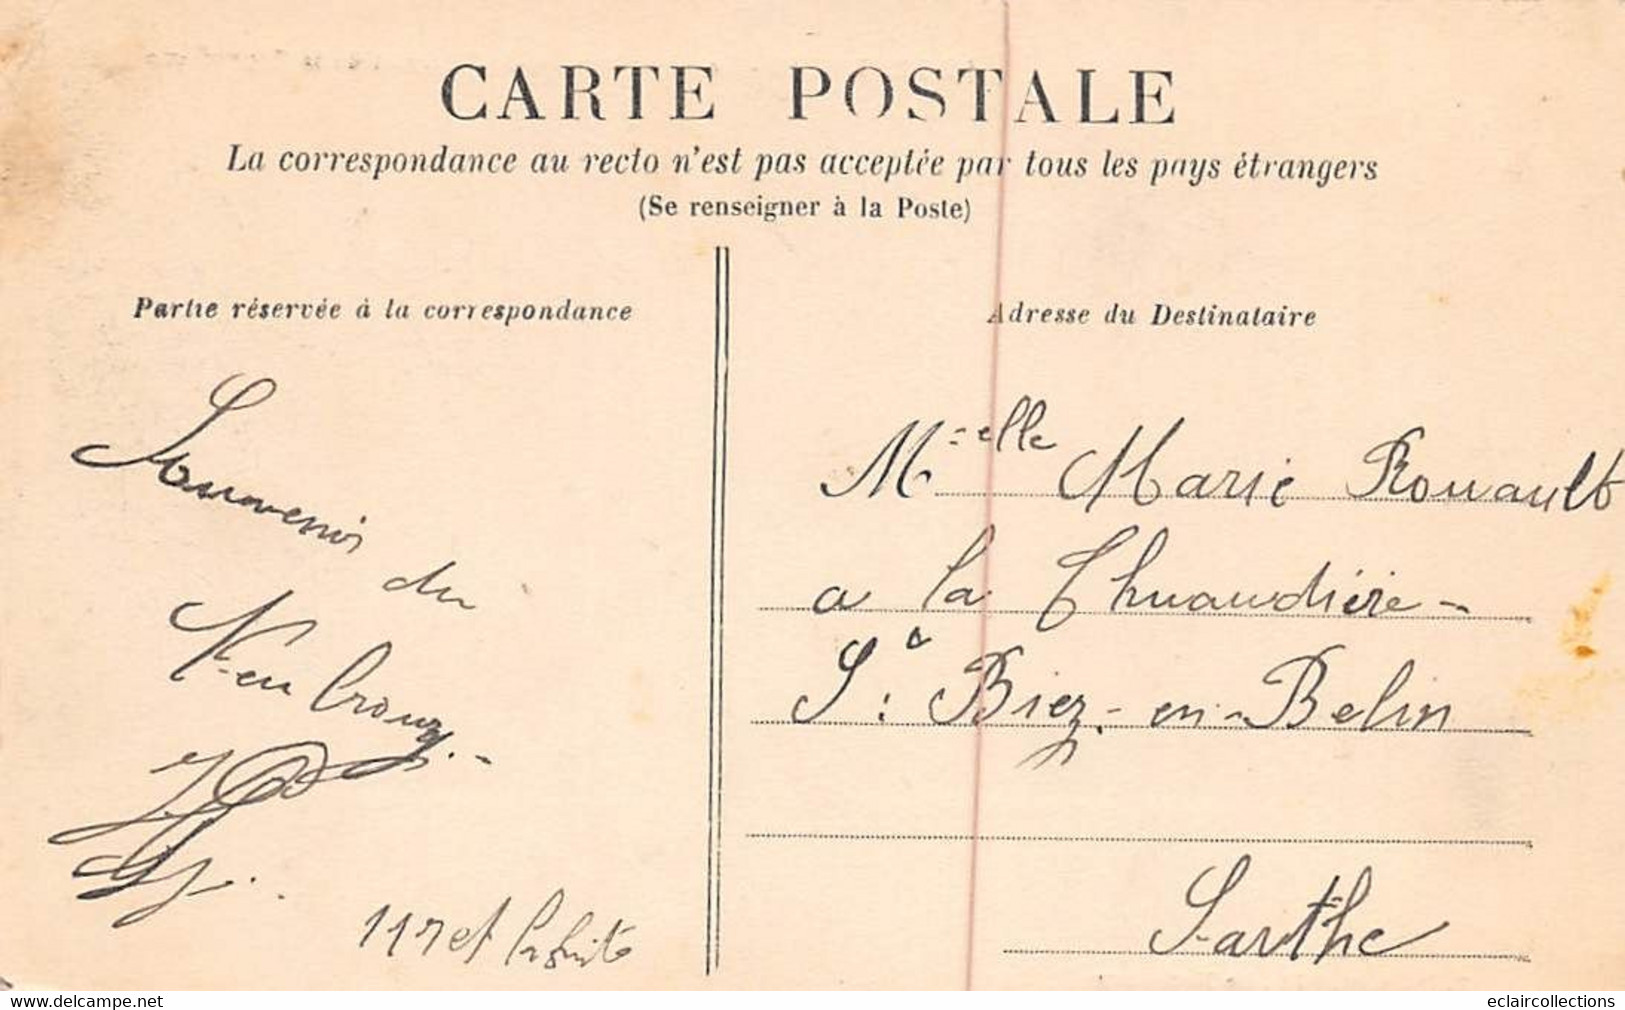 CARTE POSTALE
La correspondance au recto n'est pas acceptée par tous les pays étrangers
(Se renseigner à la Poste)
Partie réservée à la correspondance
Souvenir
du
Adresse du Destinataire
Melle Marie Rouault
a la Thuaudière
St Biez-en-Belin
Sarthe
www.delcampe.net
eclaircollections